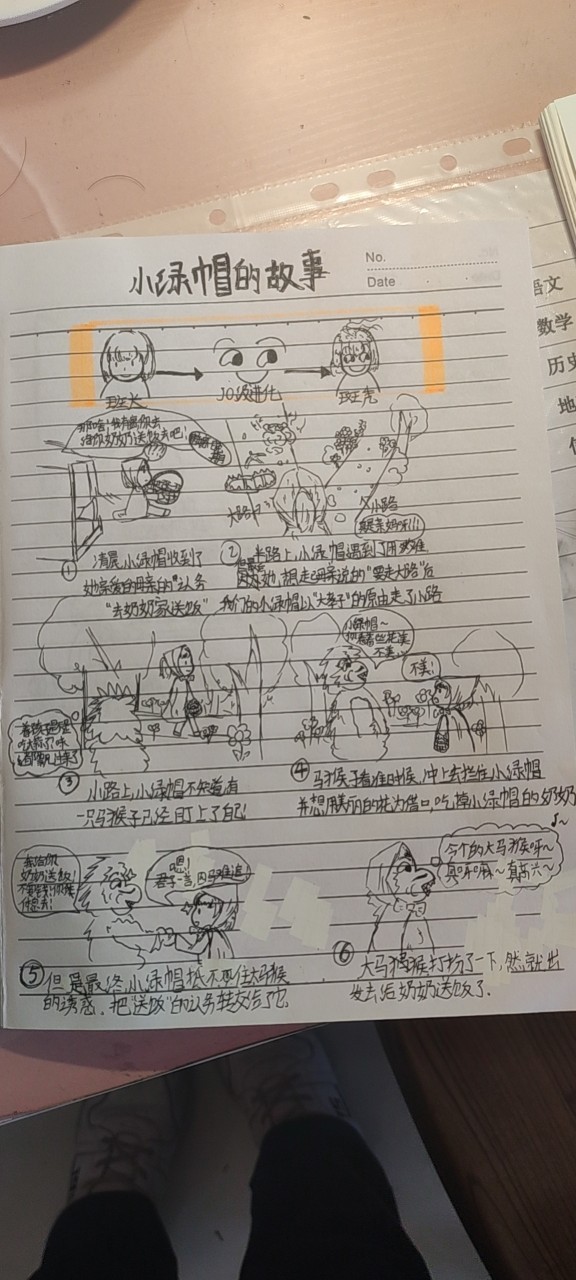 小绿帽的故事
No.
Date
语文
数学
历史
地
班长
10级进化
班壳
给你奶奶送饭去吧!
大路
小路
①
清晨,小绿帽收到了
她亲爱的母亲的"认务
"去奶奶家送饭"
②
半路上,小绿帽遇到了困难
因为她,想走母亲说的"要走大路"后
我们的小绿帽以"大孝子"的原由走了小路
小绿帽~
不美~
不美!
③
小路上,小绿帽不知道有
一只马猴子已经盯上了自己!
④
马猴子看准时候,冲上去拦住小绿帽
并想用美丽的花为借口,吃掉小绿帽的奶奶
我给你
奶奶送饭!
嗯!
君子一言,四马难追!
今个的大马猴呀~
真呀嘛~真高六~
⑤
但是最终,小绿帽抵不住大马猴
的诱惑.把"送饭"的认务转交给了它
⑥
大马猴打扮了一下,然就出
发去给奶奶送饭了.